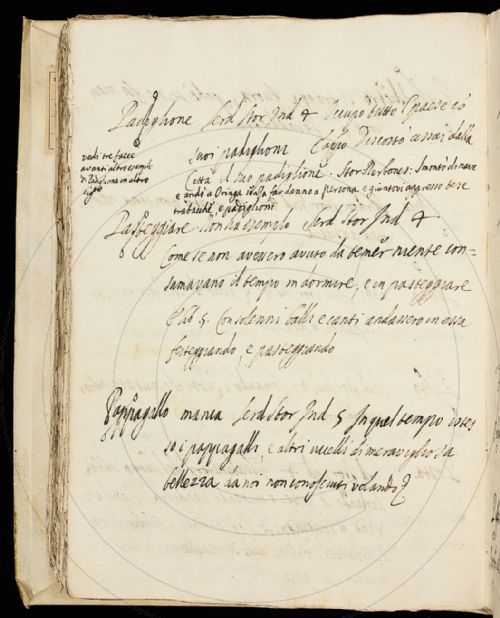 Padiglione Serd Stor Ind 4 Occupo tutto il paese co
suoi padiglioni Capio Discosto assai dalla
Città il suo padiglione. Stor Portoghes: Smontò di nave
e andò a Oringa senza far danno a persona e giuntovi appresso tese
trabacche e padiglioni
vedi tre facce
avanti altre esempli
di Padiglione in altro
Pasteggiare Non ha esempio Serd Stor Ind 4
Come se non avessero avuto da temer niente con=
sumavano il tempo in dormire, e in pasteggiare
E lib 5. Con solenni balli e canti andassero in essa
festeggiando, e pasteggiando
Pappagallo manca Serd Stor Ind 5 In quel tempo istes
so i pappagalli, e altri uccelli di meravigliosa
bellezza a noi non conosciuti volando